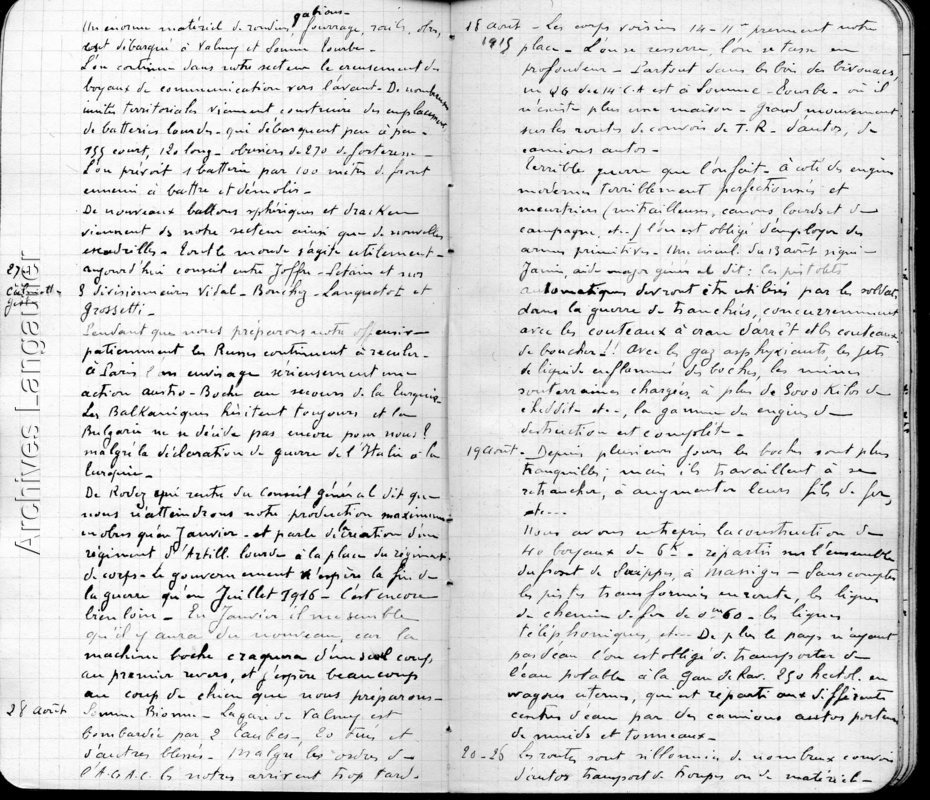 gabions-
Un énorme matériel de rondins, fourrage, rails, obus,
est débarqué à Valmy et Somme Tourbe-
L'on continue dans notre secteur le creusement des
boyaux de communication vers l'avant- De nombreuses
unités territoriales viennent construire des emplacements
de batteries lourdes- qui débarquent peu à peu-
155 court, 120 long- obusiers de 270 de forteresse-
L'on prévoit 1 batterie par 100 mètres de front
ennemi à battre et démolir-
De nouveaux ballons sphériques et dracken
viennent ds notre secteur ainsi que de nouvelles
escadrilles- Tout le monde s'agite utilement-
aujourd'hui conseil entre Joffre- Pétain et nos
3 divisionnaires Vidal- Bouchez- Languetot et
Grossetti-
Pendant que nous préparons notre offensive
patiemment les Russes continuent à reculer-
à Paris l'on envisage sérieusement une
action austro-Boche au secours de la Turquie-
Les Balkaniques hésitent toujours et la
Bulgarie ne se décide pas encore pour nous?
malgré la déclaration de guerre de l'Italie à la
Turquie-
De Rodez qui rentre du Conseil général dit que
nous n'atteindrons notre production maximum
en obus qu'en Janvier- et parle de la création d'un
régiment d'Artill. lourde à la place du régiment
de corps- le gouvernement n'espère la fin de
la guerre qu'en Juillet 1916- C'est encore
bien loin- En Janvier il me semble
qu'il y aura du nouveau, car la
machine boche craquera d'un seul coup,
au premier revers, et j'espère beaucoup
au coup de chien que nous préparons-
28 août Somme Bionne- La gare de Valmy est
bombardée par 2 Taubes- 20 tués et
d'autres blessés- Malgré les ordres de
l'A.G.A.C. les notres arrivent trop tard-
18 août- Les corps voisins 14- 11e, prennent notre
1915 place- L'on se resserre, l'on se tasse en
profondeur- Partout dans les bois des bivouacs,
un QG du 14 C.A est à Somme-Tourbe- où il
n'existe plus une maison- Grand mouvement
sur les routes de convois de T.R- d'autos, de
camions autos-
Terrible guerre que l'on fait- à coté des engins
modernes terriblement perfectionnés et
meurtriers (mitrailleuses, canons lourds et de
campagne, etc-) l'on est obligé d'employer des
armes primitives- Une circul. du 13 août signé-
Jamin, aide major général dit: les pistolets
automatiques devront être utilisés par les soldats
dans la guerre de tranchées, concurremment
avec les couteaux à cran d'arrêt et les couteaux
de boucher-!! Avec les gaz asphyxiants, les jets
de liquide enflammé des boches, les mines
souterraines chargées, à plus de 3000 kilos de
cheddite etc-, la gamme des engins de
destruction est complète-
19 août- Depuis plusieurs jours les boches sont plus
tranquilles; mais ils travaillent à se
retrancher, à augmenter leurs fils de fer,
etc---
Nous avons entrepris la construction de
40 boyaux de 6k- répartis sur l'ensemble
du front de Suippes, à Massiges- Sans compter
les pistes transformées en route, les lignes
de chemin de fer de 0m60- les lignes
téléphoniques, etc- De plus le pays n'ayant
pas d'eau l'on est obligé de transporter de
l'eau potable à la Gare de Rav. 250 hectol. en
wagons citernes, qui est réparti aux différents
centres d'eau par des camions autos porteurs
de muids et tonneaux-
20-26 Les routes sont sillonnées de nombreux convois
d'autos transport de troupes ou de matériel-
Archives Langanier